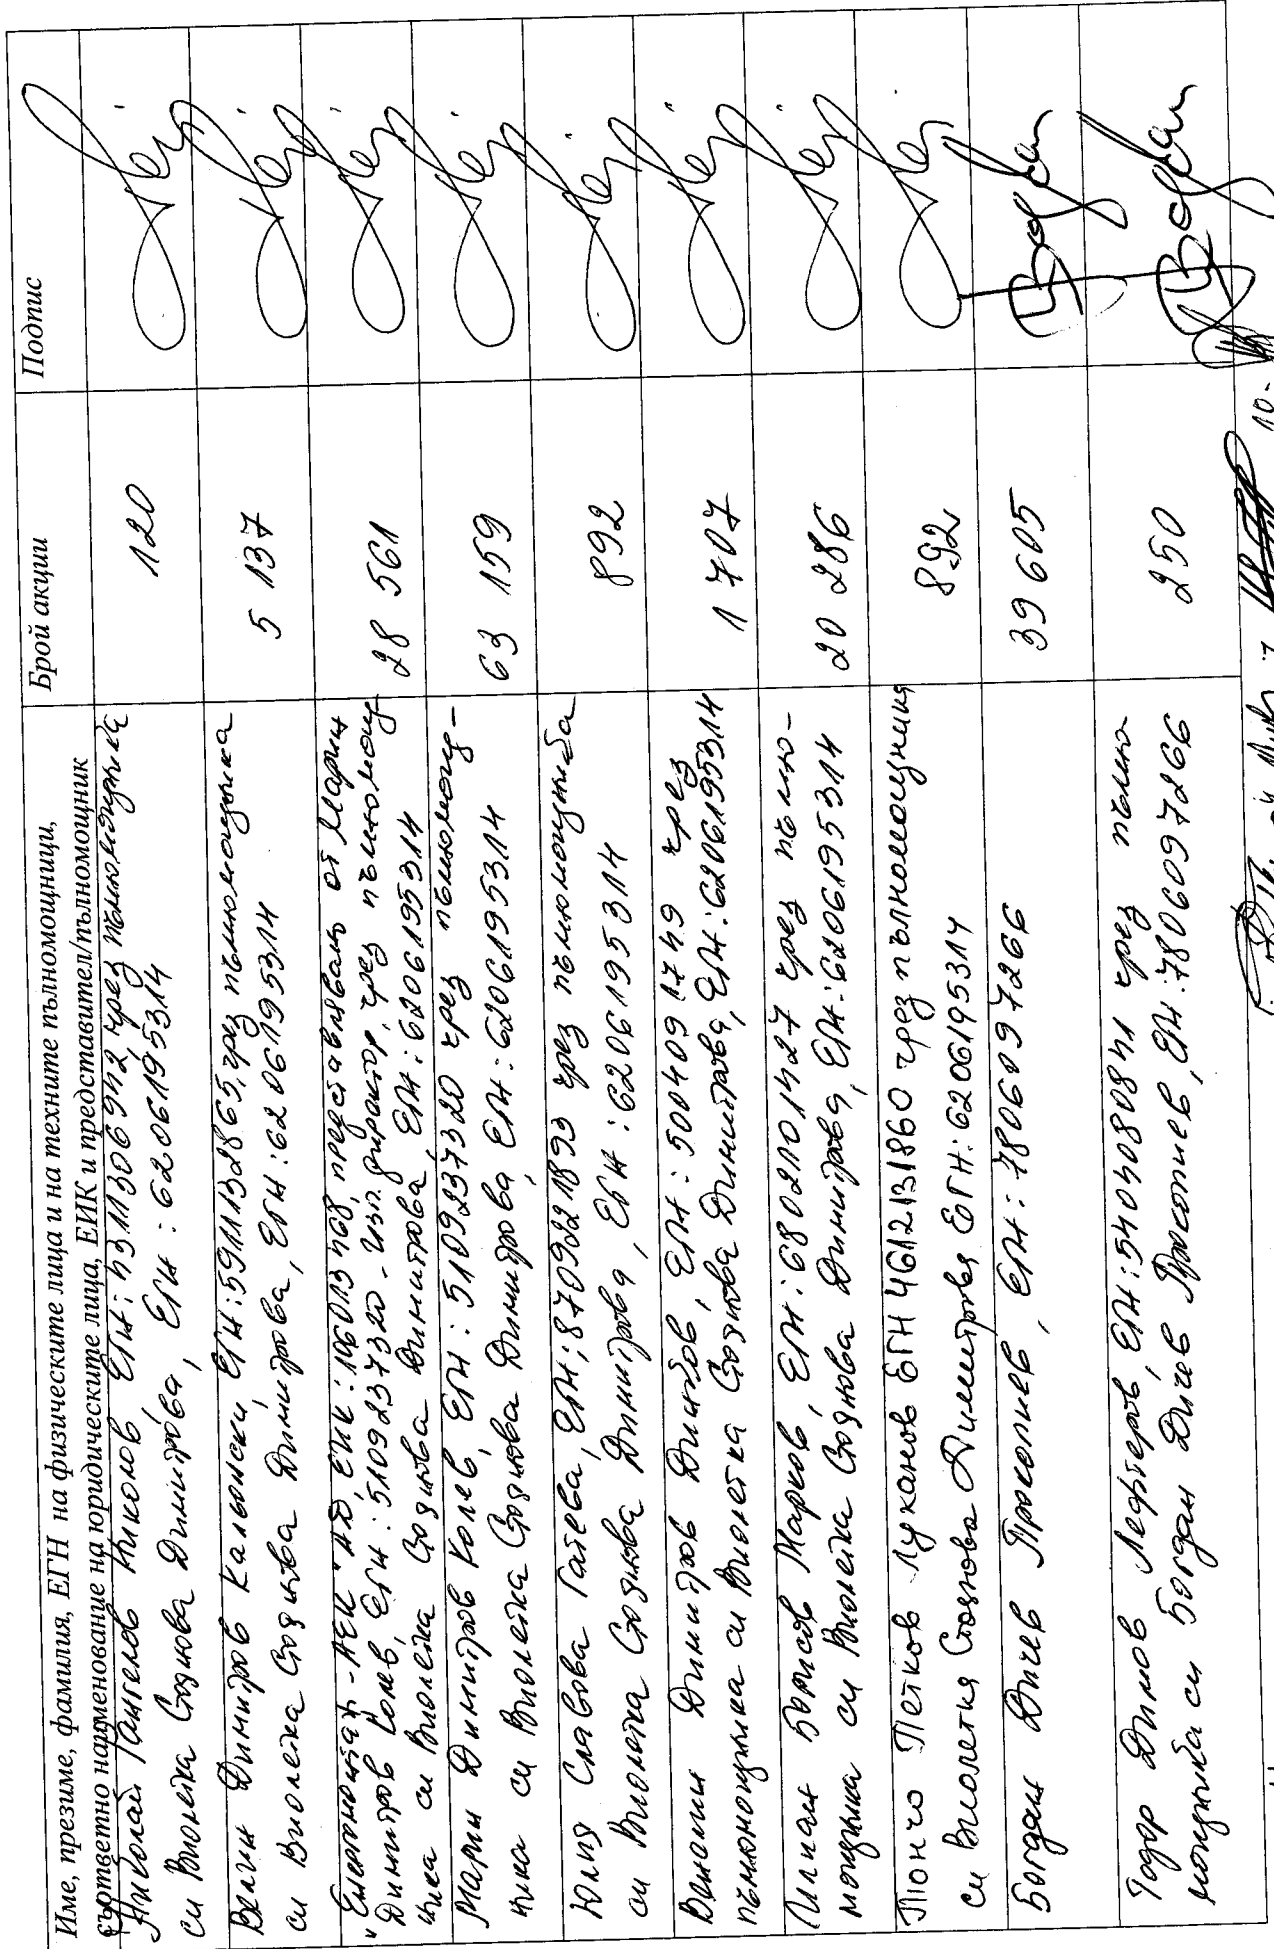 Име, презиме, фамилия, ЕГН на физическите лица и на техните пълномощници,
съответно наименование на юридическите лица, ЕИК и представител/пълномощник
Брой акции
Подпис
Николай Тангелов Николов ЕГН: 4311306942, чрез пълномощника
си Виолетка Стоянова Димитрова, ЕГН: 6206195314
120
Велин Димитров Кальонски, ЕГН: 5911132865, чрез пълномощника
си Виолетка Стоянова Димитрова, ЕГН: 6206195314
5 137
"Енергомонтаж - АЕК" АД, ЕИК: 106013468, представлявано от Марин
Димитров Колев, ЕГН: 5109237320 - изп. директор, чрез пълномощ-
ника си Виолетка Стоянова Димитрова, ЕГН: 6206195314
28 561
Марин Димитров Колев, ЕГН: 5109237320 чрез пълномощ-
ника си Виолетка Стоянова Димитрова, ЕГН: 6206195314
63 159
Юлия Славова Гатева, ЕГН: 8709221893 чрез пълномощника
си Виолетка Стоянова Димитрова, ЕГН: 6206195314
892
Димитров Димитров, ЕГН: 5004091749 чрез
пълномощника си Виолетка Стоянова Димитрова, ЕГН: 6206195314
1 707
Илиан Борисов Марков, ЕГН: 6802101427 чрез пълно-
мощника си Виолетка Стоянова Димитрова, ЕГН: 6206195314
20 286
Пончо Петков Луканов ЕГН 4612131860 чрез пълномощника
си Виолетия Стоянова Димитрова ЕГН: 6206195314
892
Богдан Дичев Прокопиев, ЕГН: 7806097266
39 605
Тодор Димов Лефтеров, ЕГН: 5403080841 чрез пълно
мощника си Богдан Дичев Прокопиев, ЕГН: 7806097266
250